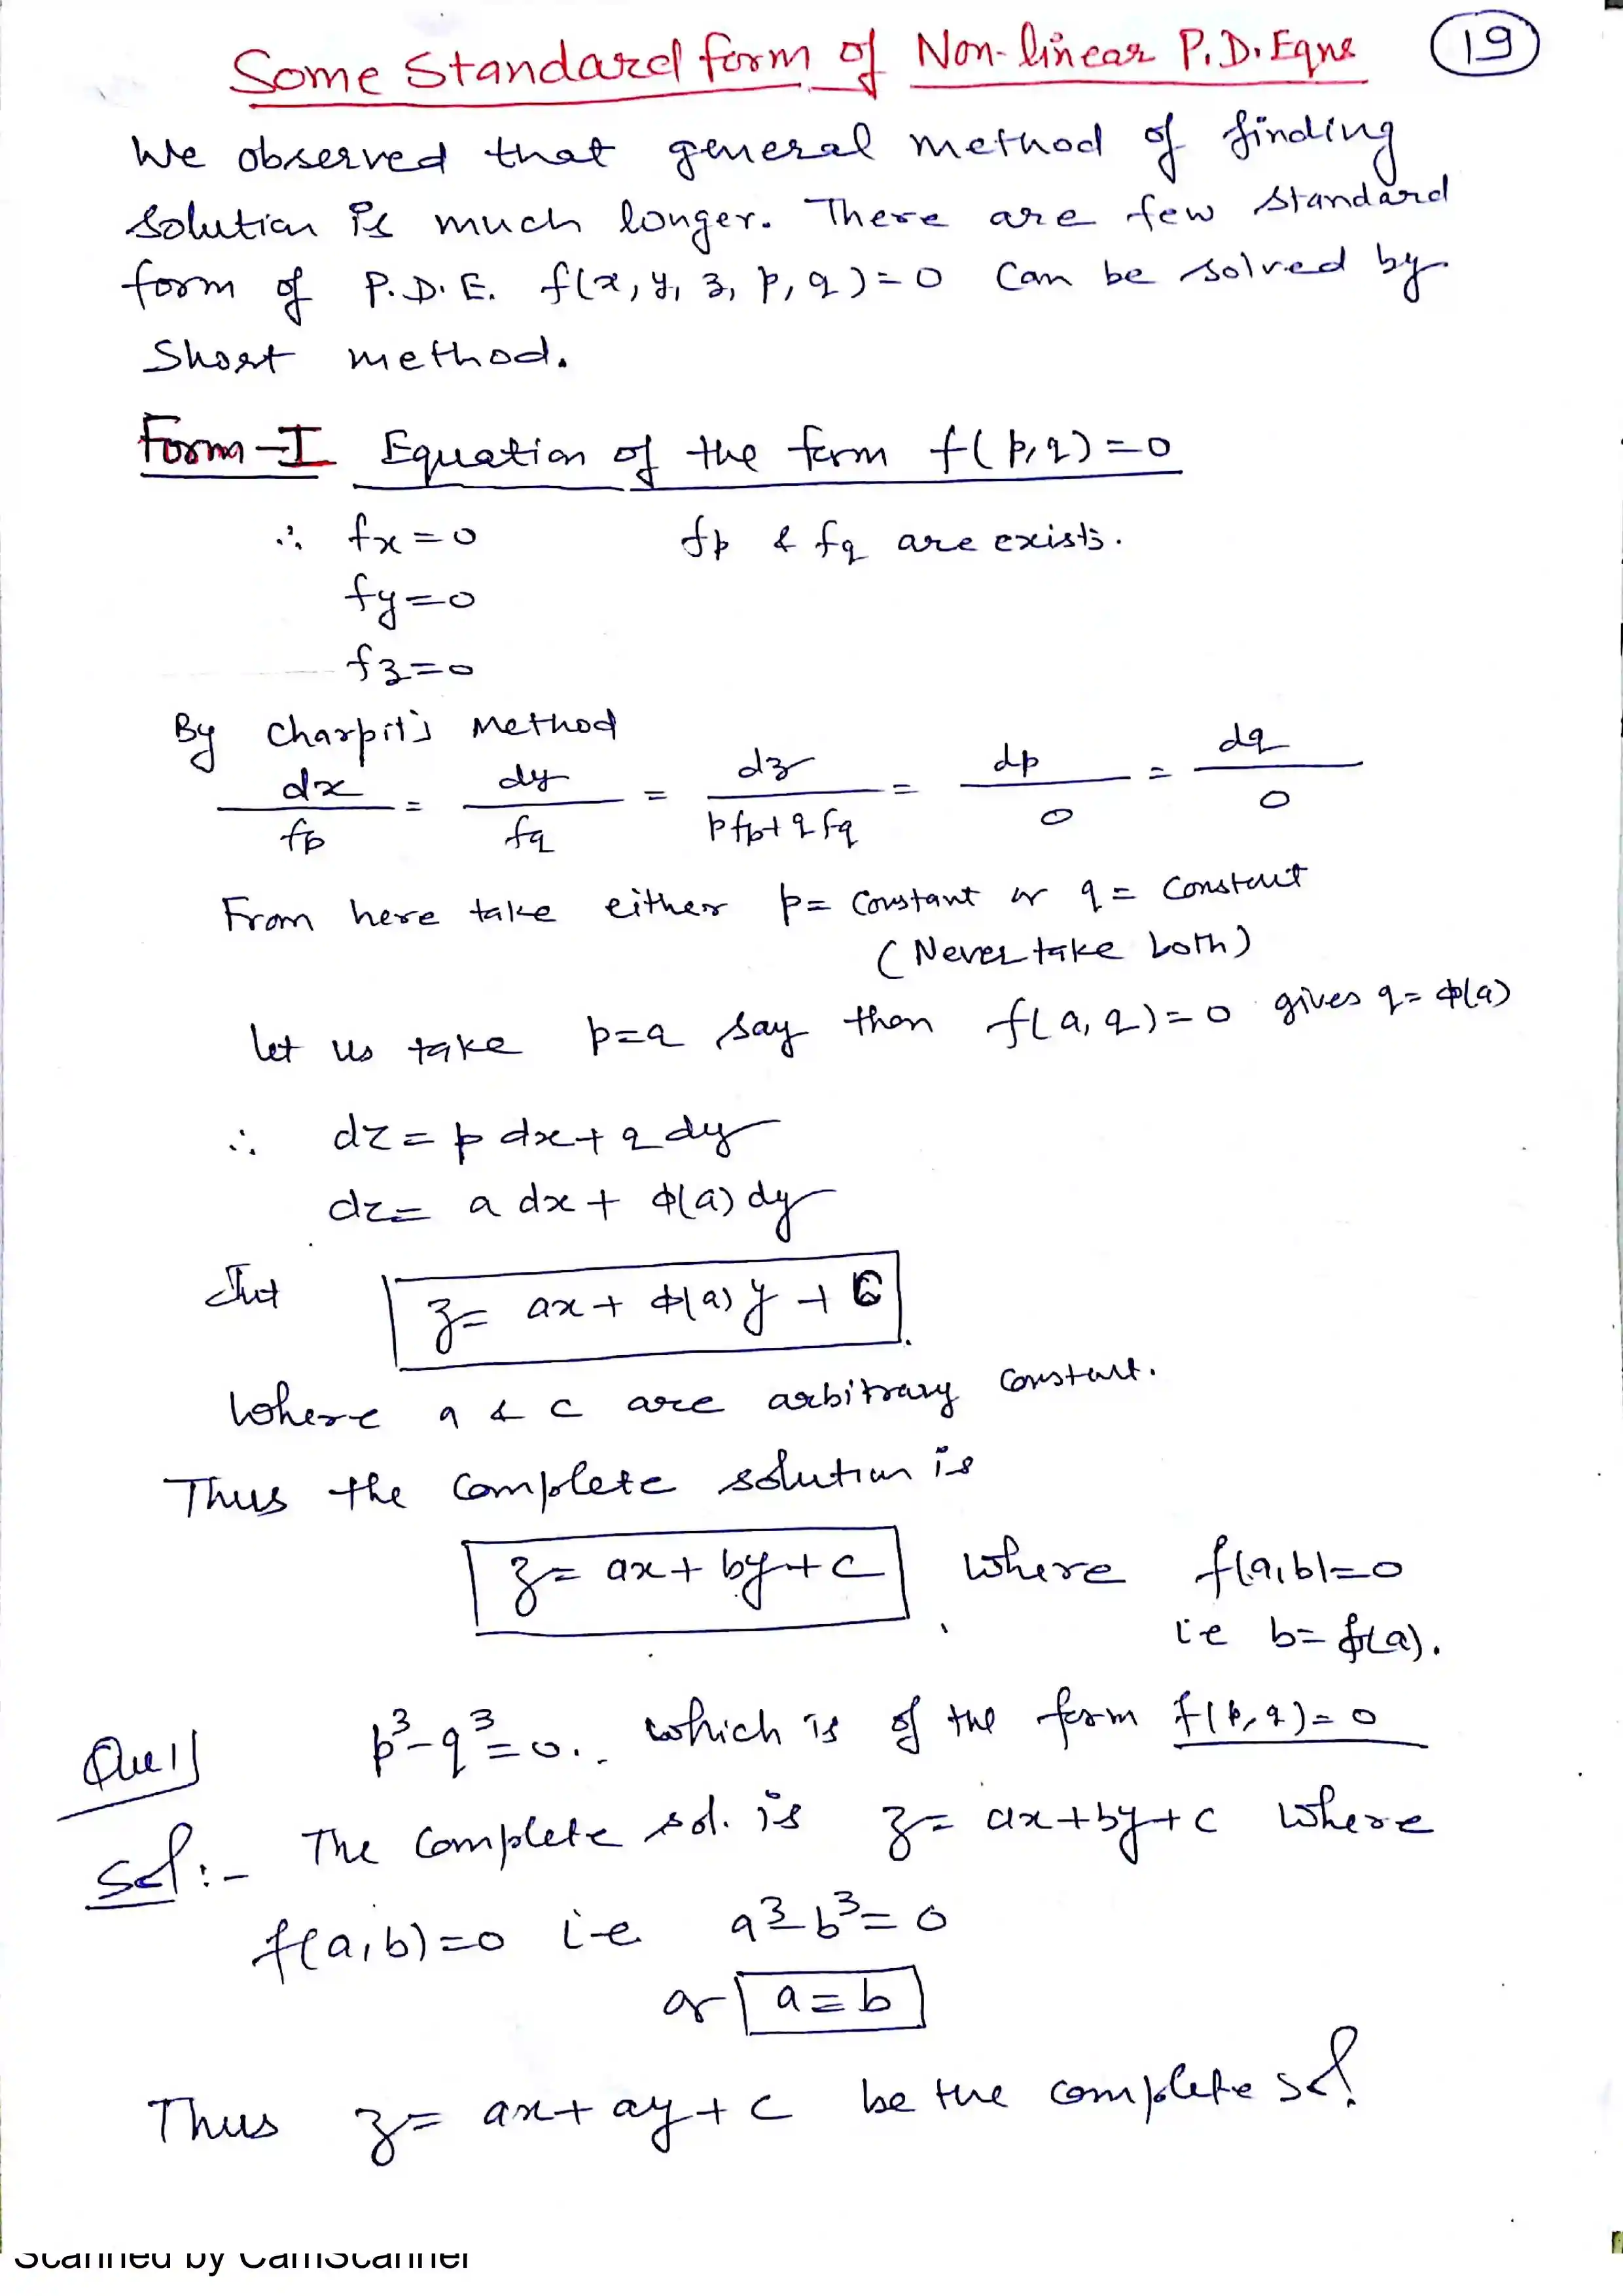 Some Standard form of Non-linear P.D. Eqns 19
We observed that general method of finding
Solution is much longer. There are few standard
form of P.D.E. f(x, y, z, p, q) = 0 Can be solved by
Short method.
Form-I Equation of the form f(p,q) = 0
∴ fx = 0 fp & fq are exists.
fy = 0
fz = 0
By Charpit's Method
dx/fp = dy/fq = dz/(p fp + q fq) = dp/0 = dq/0
From here take either p = Constant or q = Constant
(Never take both)
let us take p = a say then f(a, q) = 0 gives q = ϕ(a)
∴ dz = p dx + q dy
dz = a dx + ϕ(a) dy
z = ax + ϕ(a) y + C
Where a & c are arbitrary Constant.
Thus the Complete solution is
z = ax + by + c where f(a,b) = 0
i.e b = ϕ(a).
Que 1 p³ - q³ = 0 .. which is of the form f(p,q) = 0
Sol :- The Complete sol. is z = ax + by + c where
f(a,b) = 0 i-e a³ - b³ = 0
or a = b
Thus z = ax + ay + c be the complete sol.
Scanned by CamScanner